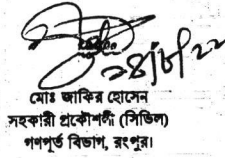 ২৪/৮/২২
মোঃ জাকির হোসেন
সহকারী প্রকৌশলী (সিভিল)
গণপূর্ত বিভাগ, রংপুর।